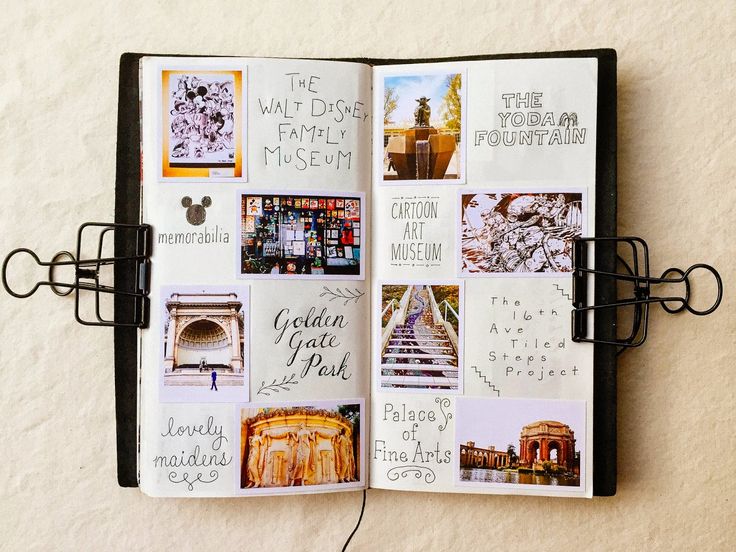 THE
WALT DISNEY
FAMILY
MUSEUM
memorabilia
Golden
Gate
Park
lovely
maidens
THE
YODA
FOUNTAIN
CARTOON
ART
MUSEUM
The
16th
Ave
Tiled
Steps
Project
Palace
of
Fine Arts